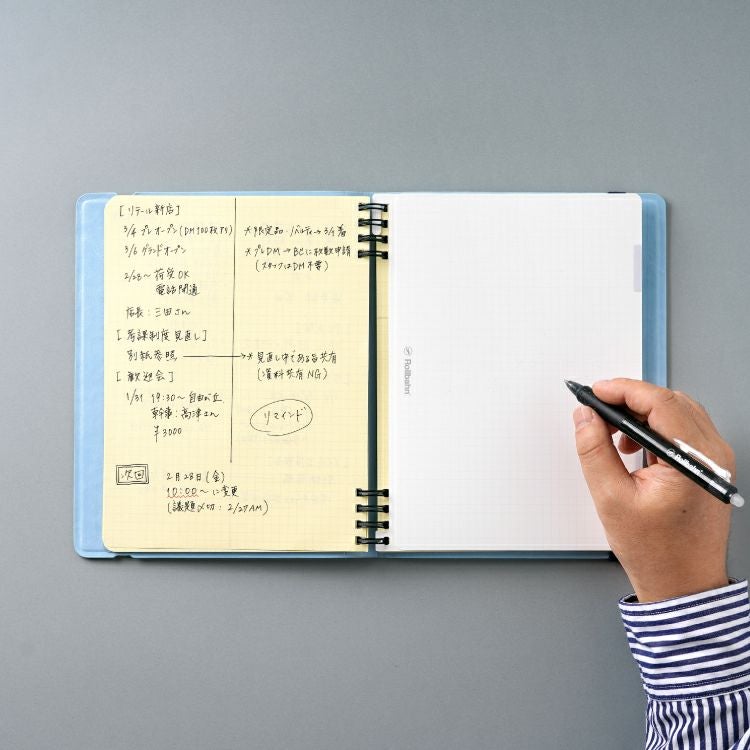 [リテール新店]
3/4 プレオープン(DM100枚TS)
3/6 グランドオープン
2/28〜 荷受OK
電話開通
店長:三田さん
[等課制度見直し]
別紙参照
[歓迎会]
1/31 19:30〜自由が丘
幹事:高津さん
¥3000
*限定品・ノベルティ→3/1着
*プレDM→BCに枚数申請
(スタッフはDM不要)
*見直し中である旨共有
(資料共有NG)
リマインド
次回
2月28日(金)
10:00〜に変更
(議題〆切:2/27AM)
Rollbahn
Rollbahn